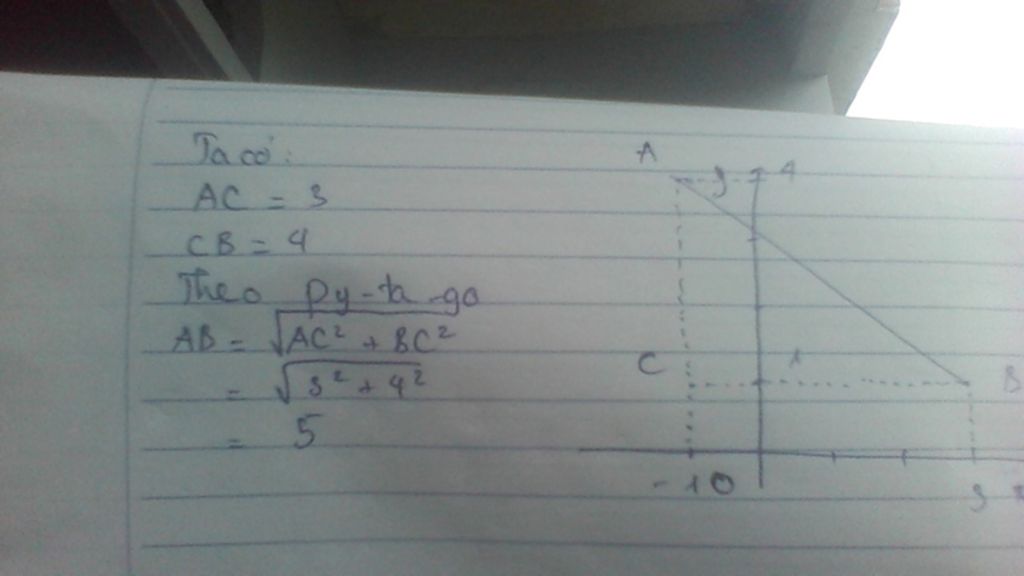 Ta có:
AC = 3
CB = 4
Theo Py-ta-go
AB = √AC² + BC²
= √3² + 4²
= 5
A
y 4
C 1 B
-1 O 3 x